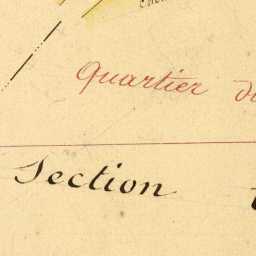 Quartier
Section